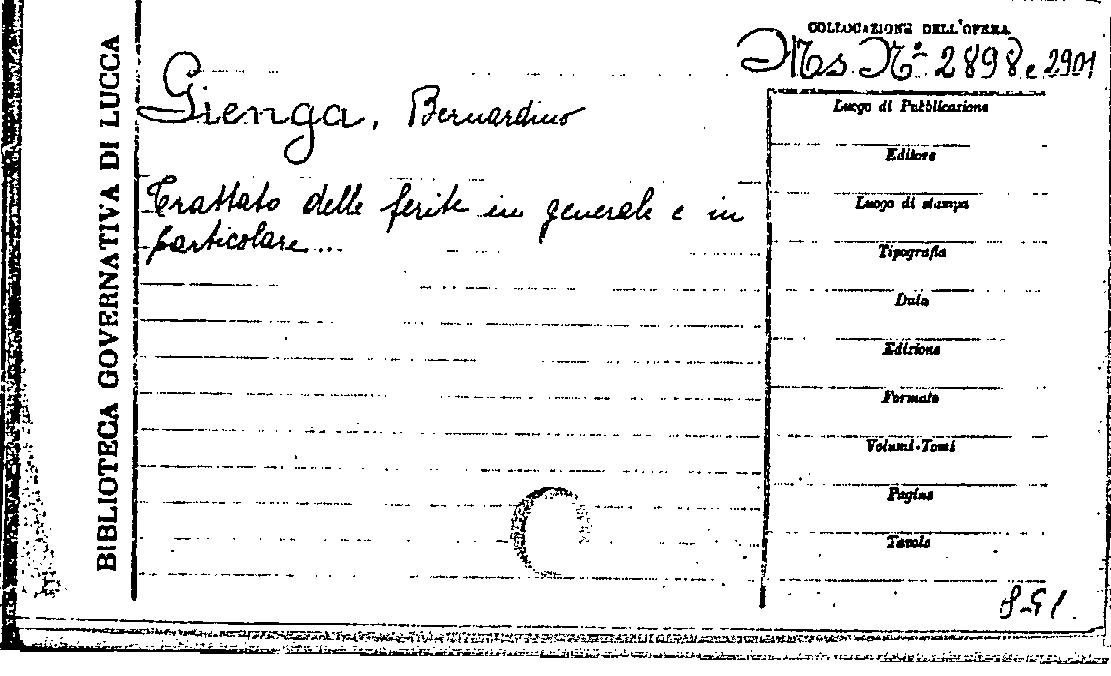 BIBLIOTECA GOVERNATIVA DI LUCCA
COLLOCAZIONE DELL'OPERA
Ms. N° 2898 e 2901
Gienga, Bernardino
Trattato delle ferite in generale e in
particolare...
Luogo di Pubblicazione
Editore
Luogo di stampa
Tipografia
Data
Edizione
Formato
Volumi-Tomi
Pagine
Tavole